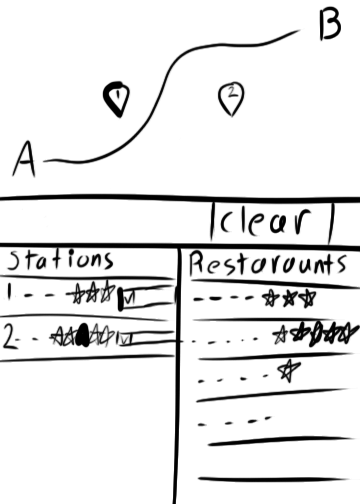 B
1
2
A
clear
Stations
Restaraunts
1 - - ☆☆☆
- - - - ☆☆☆
2 - - ☆☆☆☆☆
- - - - ☆☆☆☆☆
- - - - ☆
- - - -